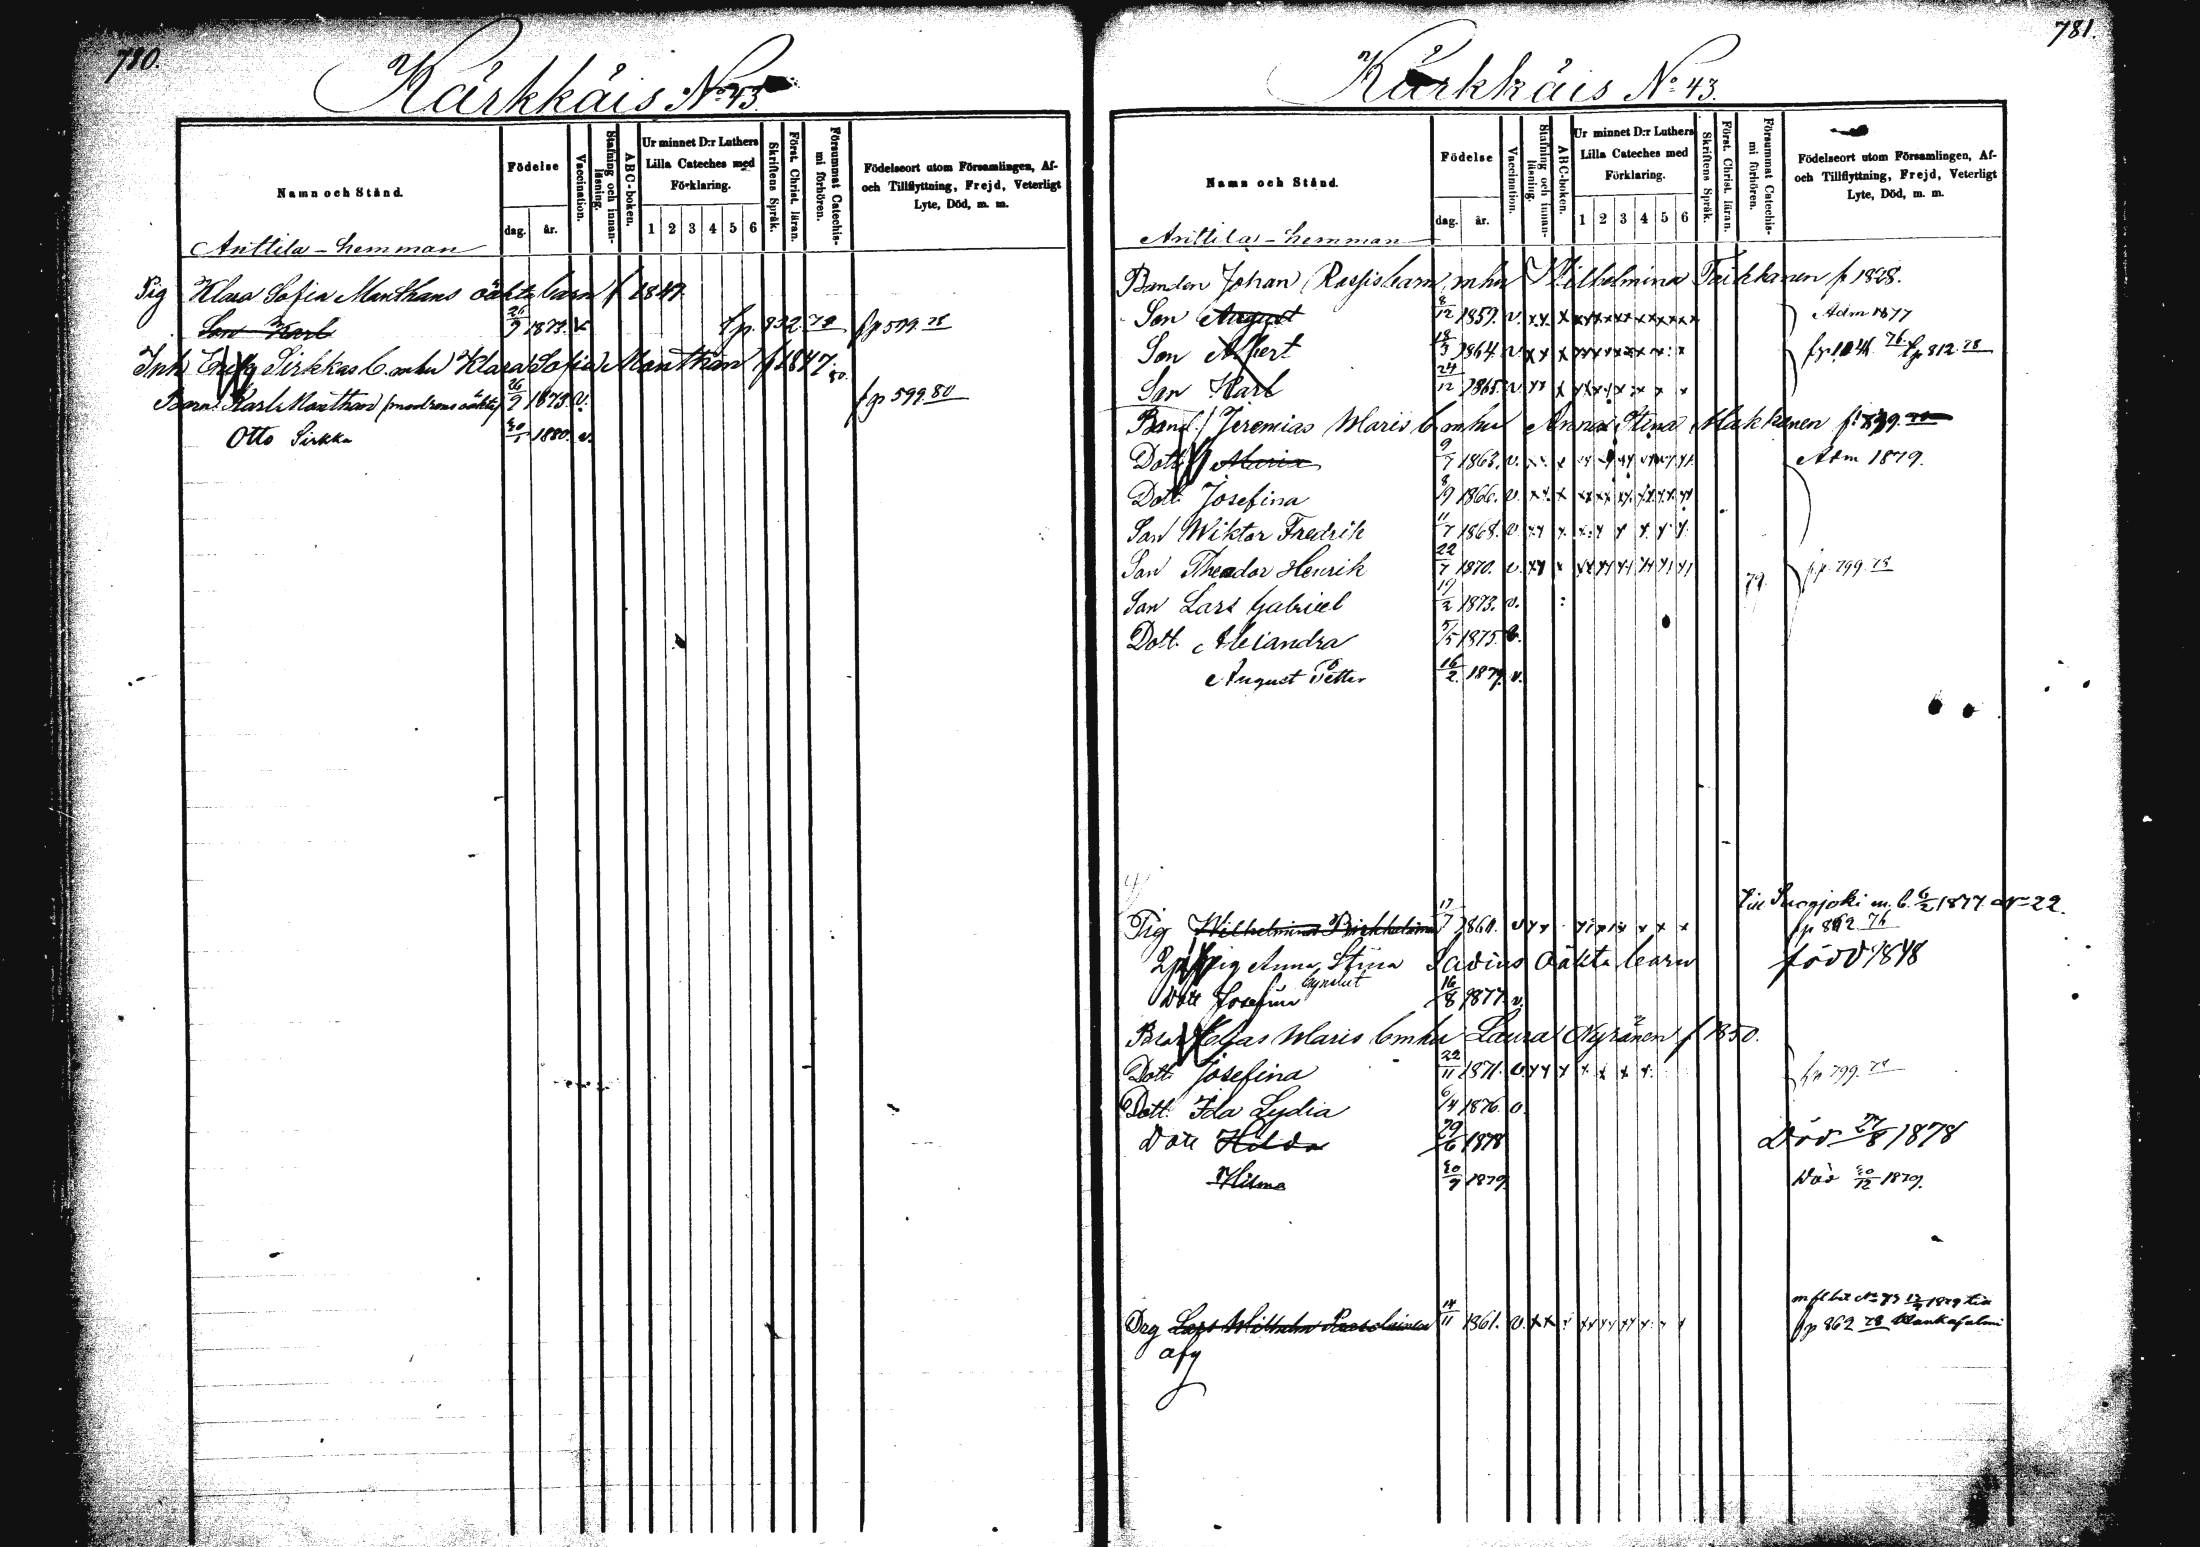 780.
Kärkkäis No 43.
Namn och Stånd.
Födelse
dag. år.
Vaccination.
Stafning och innan-läsning.
ABC-boken.
Ur minnet D:r Luthers
Lilla Cateches med
Förklaring.
1 2 3 4 5 6
Skriftens Språk.
Först. Christ. läran.
Försummat Catechis-mi förhören.
Födelseort utom Församlingen, Af-
och Tillflyttning, Frejd, Veterligt
Lyte, Död, m. m.
Anttila-hemman
Pig Klara Sofia Manthans oäkta barn f 1847.
Son Karl 26/9 1873. v. fp. 832.78 fp 599 78
Inh Sirkkas b. m hu Klara Sofia Manthan f 1847. 80.
Barn Karl Manthan (modrens oäkta) 26/9 1873 v. fp 599 80
Otto Sirkka 1880. v.
781.
Kärkkäis No 43.
Namn och Stånd.
Födelse
dag. år.
Vaccination.
Stafning och innan-läsning.
ABC-boken.
Ur minnet D:r Luthers
Lilla Cateches med
Förklaring.
1 2 3 4 5 6
Skriftens Språk.
Först. Christ. läran.
Försummat Catechis-mi förhören.
Födelseort utom Församlingen, Af-
och Tillflyttning, Frejd, Veterligt
Lyte, Död, m. m.
Anttila-hemman
Bonden Johan Rossis barn, m hu Wilhelmina f 1828.
Son August 8/12 1859. v. Adm 1877
Son Albert 18/3 1864 v fp 812 78
Son Karl 24/12 1865. v.
Bond. Jeremias Maris b m hu Anna Stina Makkonen
Dott Maria 9/7 1863. v. Adm 1879.
Dott Josefina 8/9 1866. v.
Son Wiktor Fredrik 11/7 1868. v.
Son Theodor Henrik 22/7 1870. v. 79. fp. 799. 78
Son Lars Gabriel 19/2 1873. v.
Dott. Alexandra 5/5 1875 v.
August Petter 16/2 1879. v.
Till m. b. 6/2 1877 No 22.
Pig Wilhelmina 17/7 1860. v fp 862 76
pig Anna Stina Savius oäkta barn född 1848
Dott Josefina 16/8 1877. v.
Maris b m hu Laura Nyränen f 1850.
Dott. Josefina 22/11 1871. v fp 799. 78
Dott. Ida Lydia 6/4 1876. v.
Dott Hilda 29/6 1878 Död 27/8 1878
Hilma 30/9 1879. Död 30/12 1879.
Drg Lars Wilhelm 14/11 1861. v. fp 862 78
afg